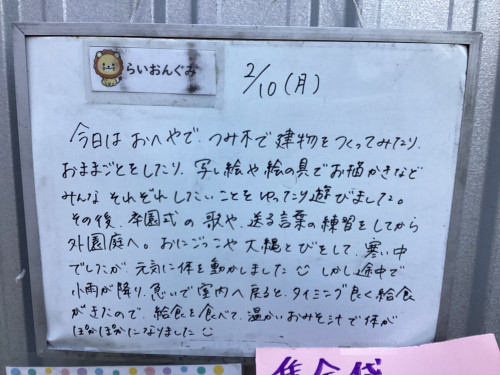 らいおんぐみ
2/10(月)
今日は おへやで、つみ木で 建物を つくってみたり、
おままごとをしたり、写し絵や 絵の具で お描かきなど
みんな それぞれ したいことを ゆったり遊びました。
その後、卒園式の 歌や、送る言葉の 練習をしてから
外園庭へ。おにごっこや 大縄とびをして、寒い中
でしたが、元気に 体を 動かしました☺ しかし 途中で
小雨が降り、急いで 室内へ 戻ると、タイミング良く 給食
がきたので、給食を食べて、温かいおみそ汁で 体が
ぽかぽかになりました☺